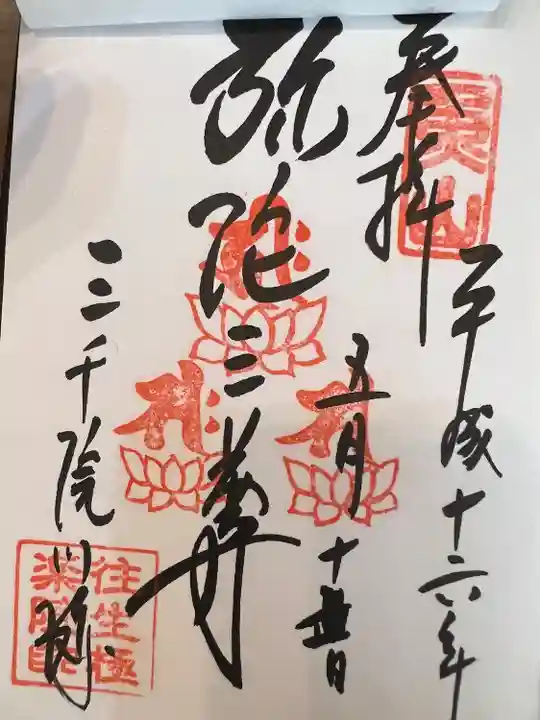 奉拝
平成十六年
五月十五日
弥陀三尊
三千院門跡
往生極
楽院印